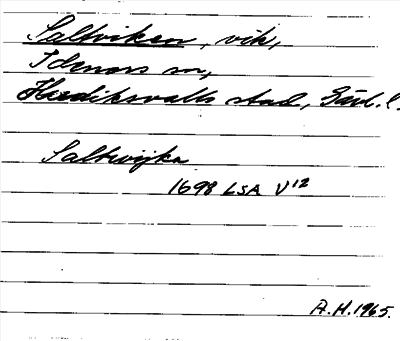 Saltviken, vik,
Idenors sn,
Hudiksvalls stad, Gävl. l.
Saltwijka
1698 LSA V12
A.H. 1965.